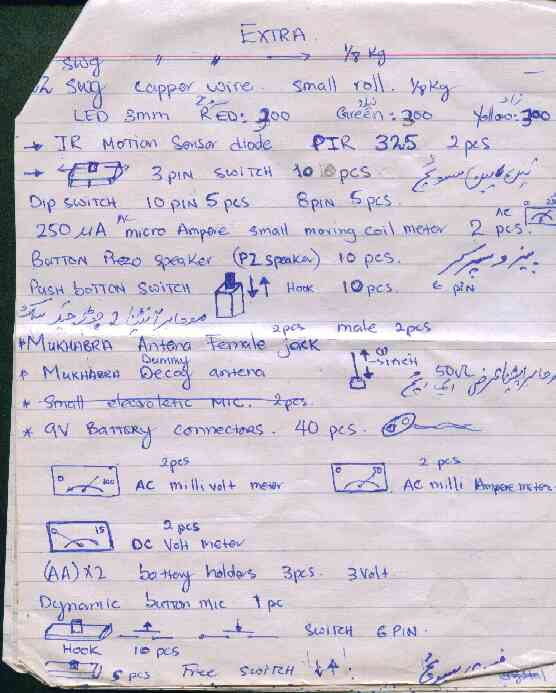 EXTRA
SWG " " → 1/8 Kg
SWG capper wire. small roll. 1/8 Kg
LED 3mm RED: 300 Green: 300 Yellow: 300
→ IR Motion Sensor diode PIR 325 2 pcs
→ 3 PIN SWITCH 10 pcs
Dip SWITCH 10 PIN 5 pcs 8 PIN 5 pcs.
250 µA AC micro Ampere small moving coil meter 2 pcs. AC
Button Piezo speaker (PZ speaker) 10 pcs.
Push botton SWITCH ↓↑ Hook 10 pcs. 6 pin
* MUKHABRA Antena Female jack 2pcs male 2pcs
* MUKHABRA Dummy Decoy antena 5 inch 50Ω
* Small electrotetic MIC. 2pcs.
* 9V Battery connectors. 40 pcs.
0 100 2pcs AC milli volt meter 0 50 2 pcs AC milli Ampere meter
0 15 2 pcs DC Volt meter
(AA) X2 battery holders 3pcs. 3 Volt.
Dynamic button mic 1 pc
SWITCH 6 PIN.
Hook 10 pcs
5 pcs Free SWITCH ↓↑